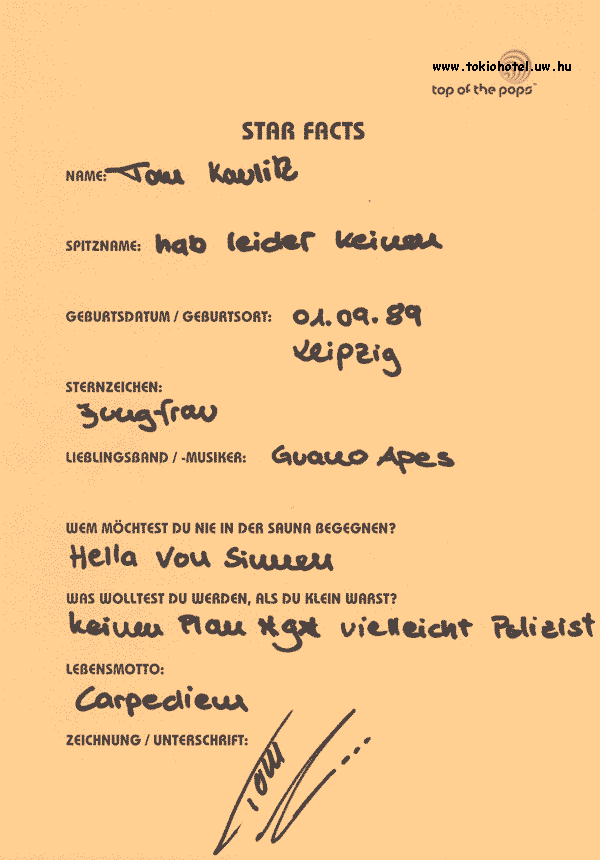 www.tokiohotel.uw.hu
top of the pops™
STAR FACTS
NAME: Tom Kaulitz
SPITZNAME: hab leider keinen
GEBURTSDATUM / GEBURTSORT: 01.09.89
Leipzig
STERNZEICHEN:
Jungfrau
LIEBLINGSBAND / -MUSIKER: Guano Apes
WEM MÖCHTEST DU NIE IN DER SAUNA BEGEGNEN?
Hella von Sinnen
WAS WOLLTEST DU WERDEN, ALS DU KLEIN WARST?
keinen Plan *g* vielleicht Polizist
LEBENSMOTTO:
Carpediem
ZEICHNUNG / UNTERSCHRIFT:
Tom